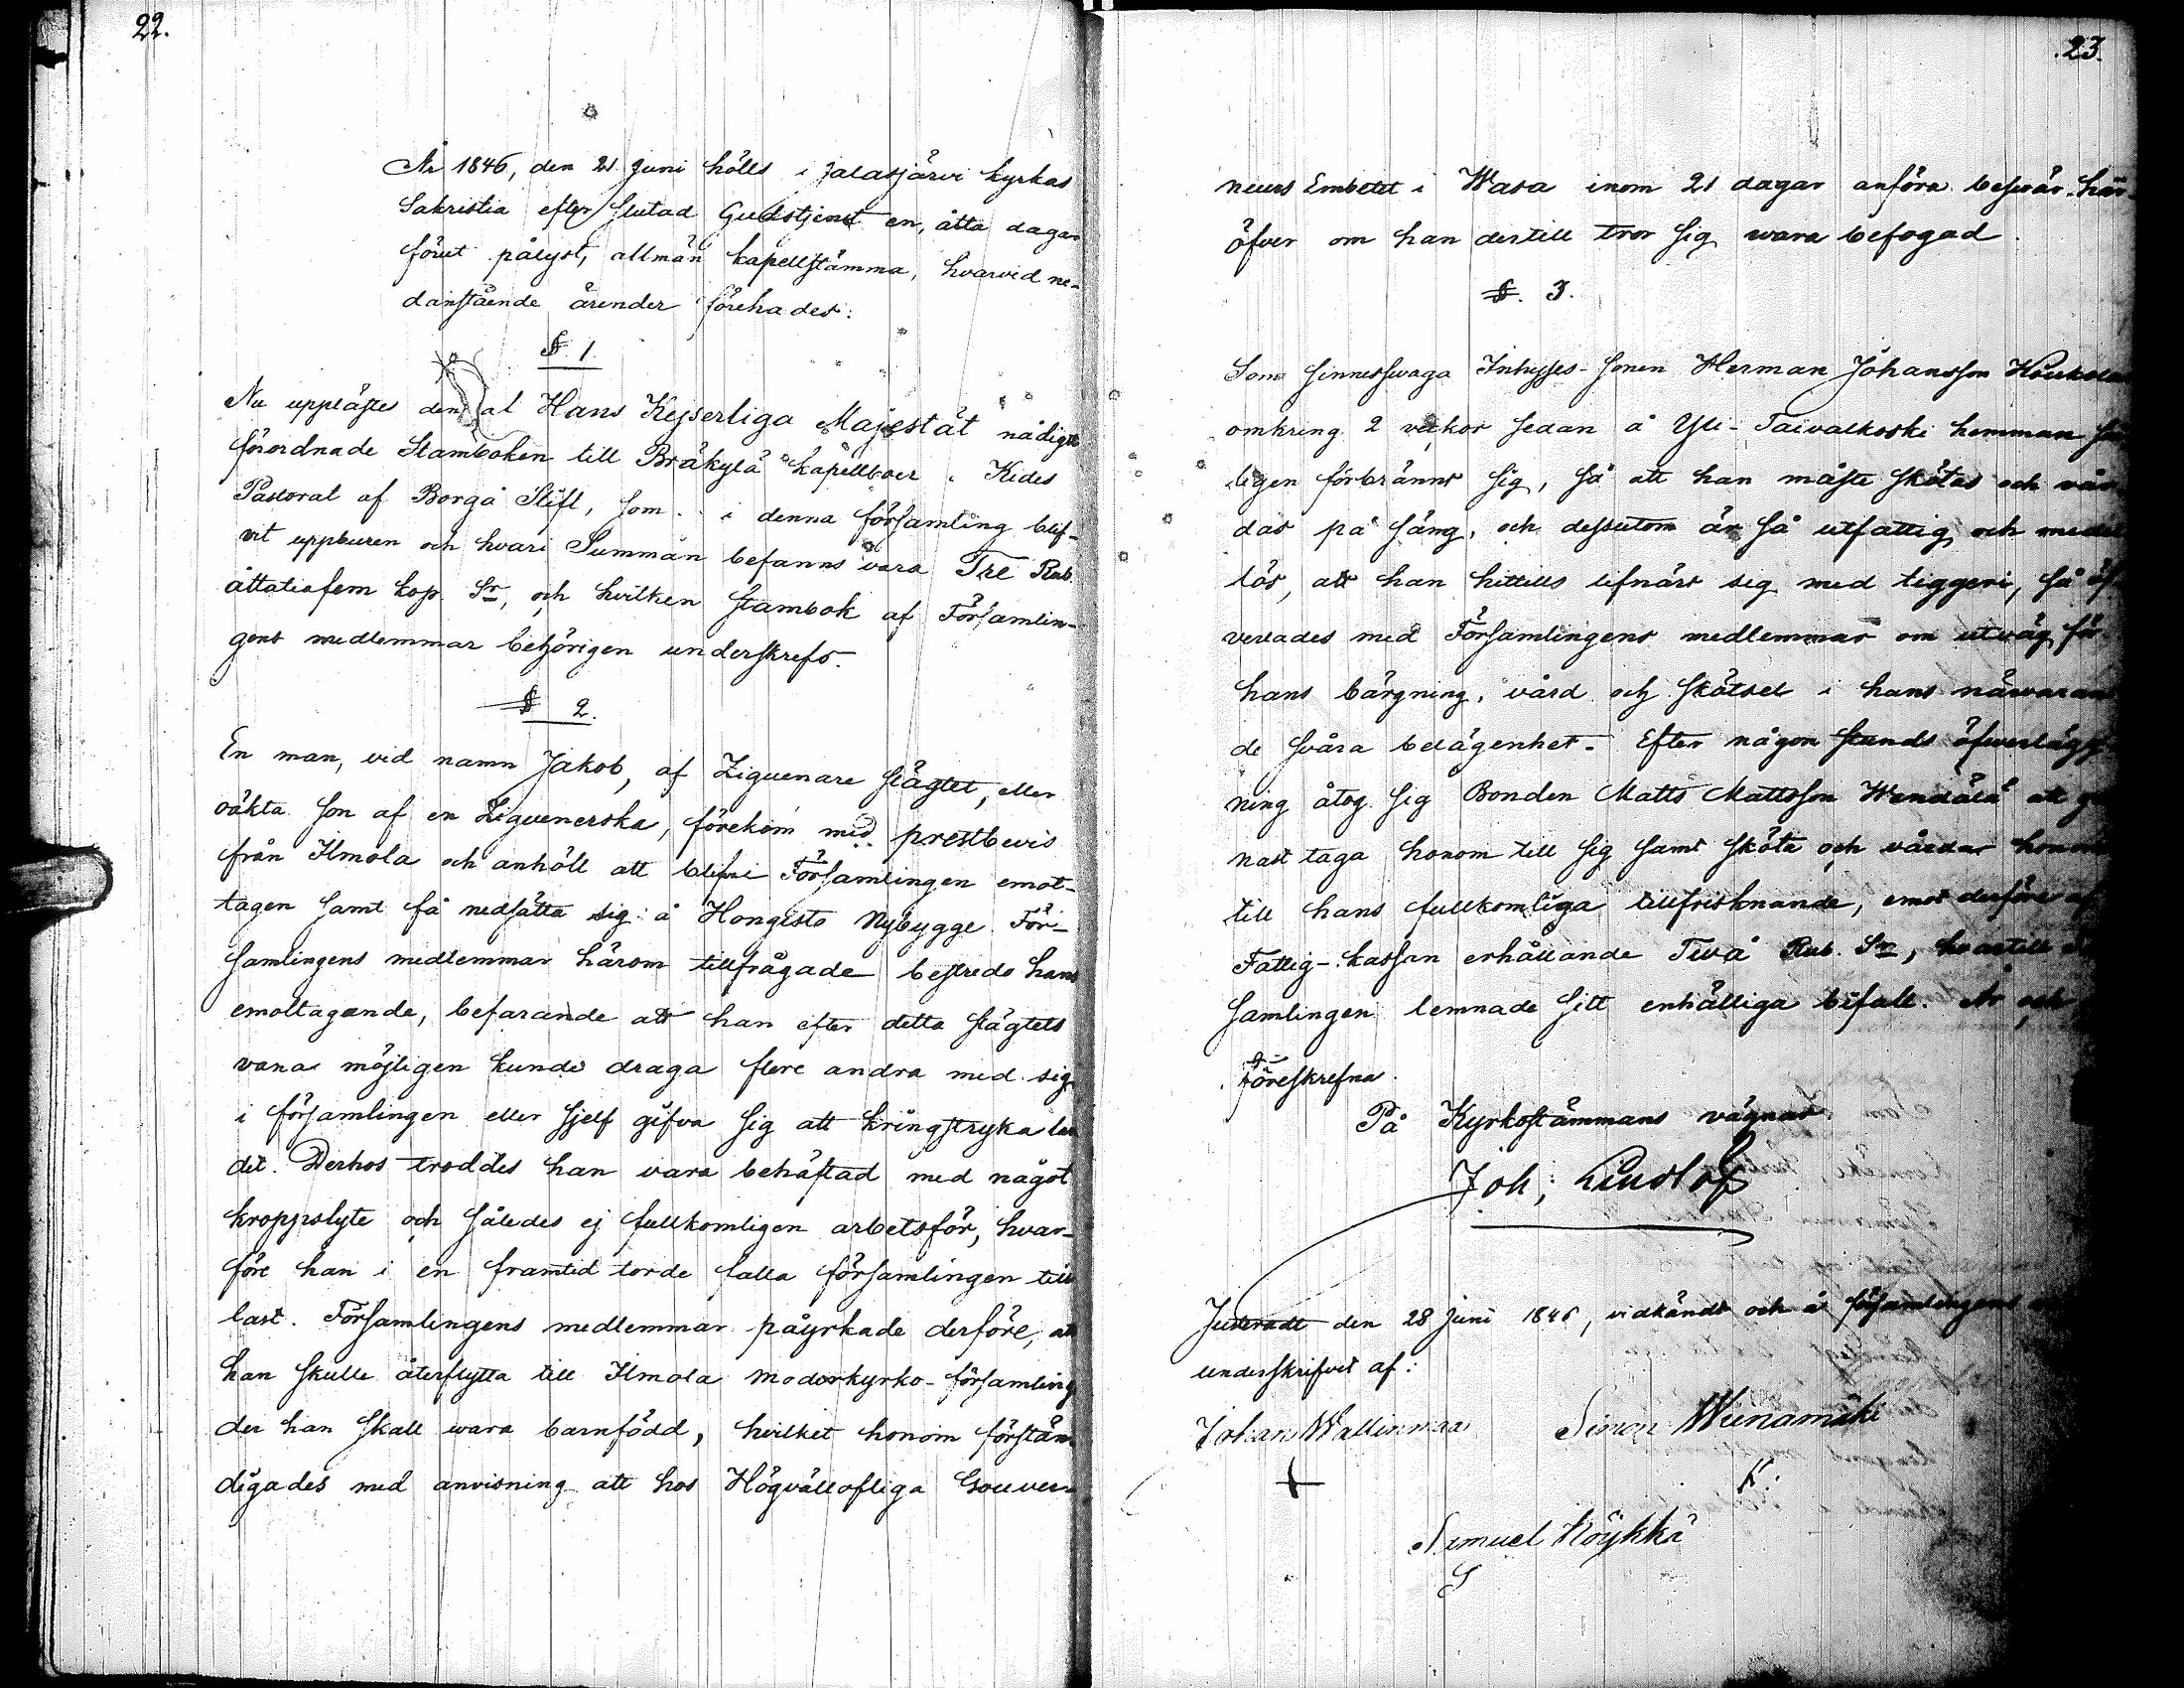 22.
År 1846, den 21 Juni hölls i Jalasjärvi kyrkas
Sakristia efter slutad Gudstjenst en, åtta dagar
förut pålyst, allmän kapellstämma, hvarvid ne-
danstående ärender förehades:
§. 1.
Nu upplästes den af Hans Kejserliga Majestät nådigst
förordnade Stamboken till Bräkylä kapellboer i Kides
Pastoral af Borgå Stift, som i denna församling blif-
vit uppburen och hvari Summan befanns vara Tre Rub.
åttatiofem kop. Sr, och hvilken Stambok af Församlin-
gens medlemmar behörigen underskrefs.
§ 2.
En man, vid namn Jakob, af Ziguenare slägtet, eller
oäkta son af en Ziguenerska, förekom med prestbevis
från Ilmola och anhöll att blifvi Församlingen emot-
tagen samt få nedsätta sig å Hongisto Nybygge. För-
samlingens medlemmar härom tillfrågade bestredo hans
emottagande, befarande att han efter detta slägtets
vana möjligen kunde draga flere andra med sig
i församlingen eller sjelf gifva sig att kringstryka lan
det. Derhos troddes han vara behäftad med något
kroppslyte och således ej fullkomligen arbetsför, hvar-
före han i en framtid torde falla församlingen till
last. Församlingens medlemmar påyrkade derföre, att
han skulle återflytta till Ilmola moderkyrko-församling
der han skall wara barnfödd, hvilket honom förstän-
digades med anvisning att hos Högvällofliga Gouver-
23.
neurs Embetet i Wasa inom 21 dagar anföra besvär här-
öfver om han dertill tror sig wara befogad.
§. 3.
Som sinnesswaga Inhyses-sonen Herman Johansson
omkring 2 veckor sedan å Yli-Taivalkoski hemman
ligen förbrännt sig, så att han måste skötas och vår-
das på säng, och dessutom är så utfattig och medel
lös, att han hittills lifnärt sig med tiggeri, så öf-
verlades med Församlingens medlemmar om utväg för
hans bärgning, vård och skötsel i hans närvaran
de svåra belägenhet. Efter någon stunds öfverlägg-
ning åtog sig Bonden Matts Mattsson Wendälä att ge
nast taga honom till sig samt sköta och vårdar honom
till hans fullkomliga tillfrisknande, emot derföre af
Fattig-kassan erhållande Två Rub. Sr, hvartill
samlingen lemnade sitt enhälliga bifall. År och
föreskrefna.
På Kyrkostämmans vägnar.
Joh; Lindlöf
Justeradt den 28 Juni 1846, vidkändt och å församlingens
underskrifvet af:
Johan Wallinmaa Simon Wiinamäki
+ K:
Samuel Köykkä
S